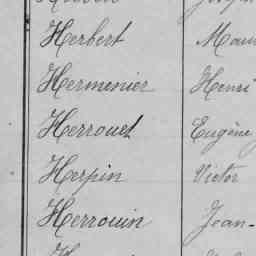 Herbert
Hermenier Henri
Herrouet Eugène
Herpin Victor
Herrouin Jean-